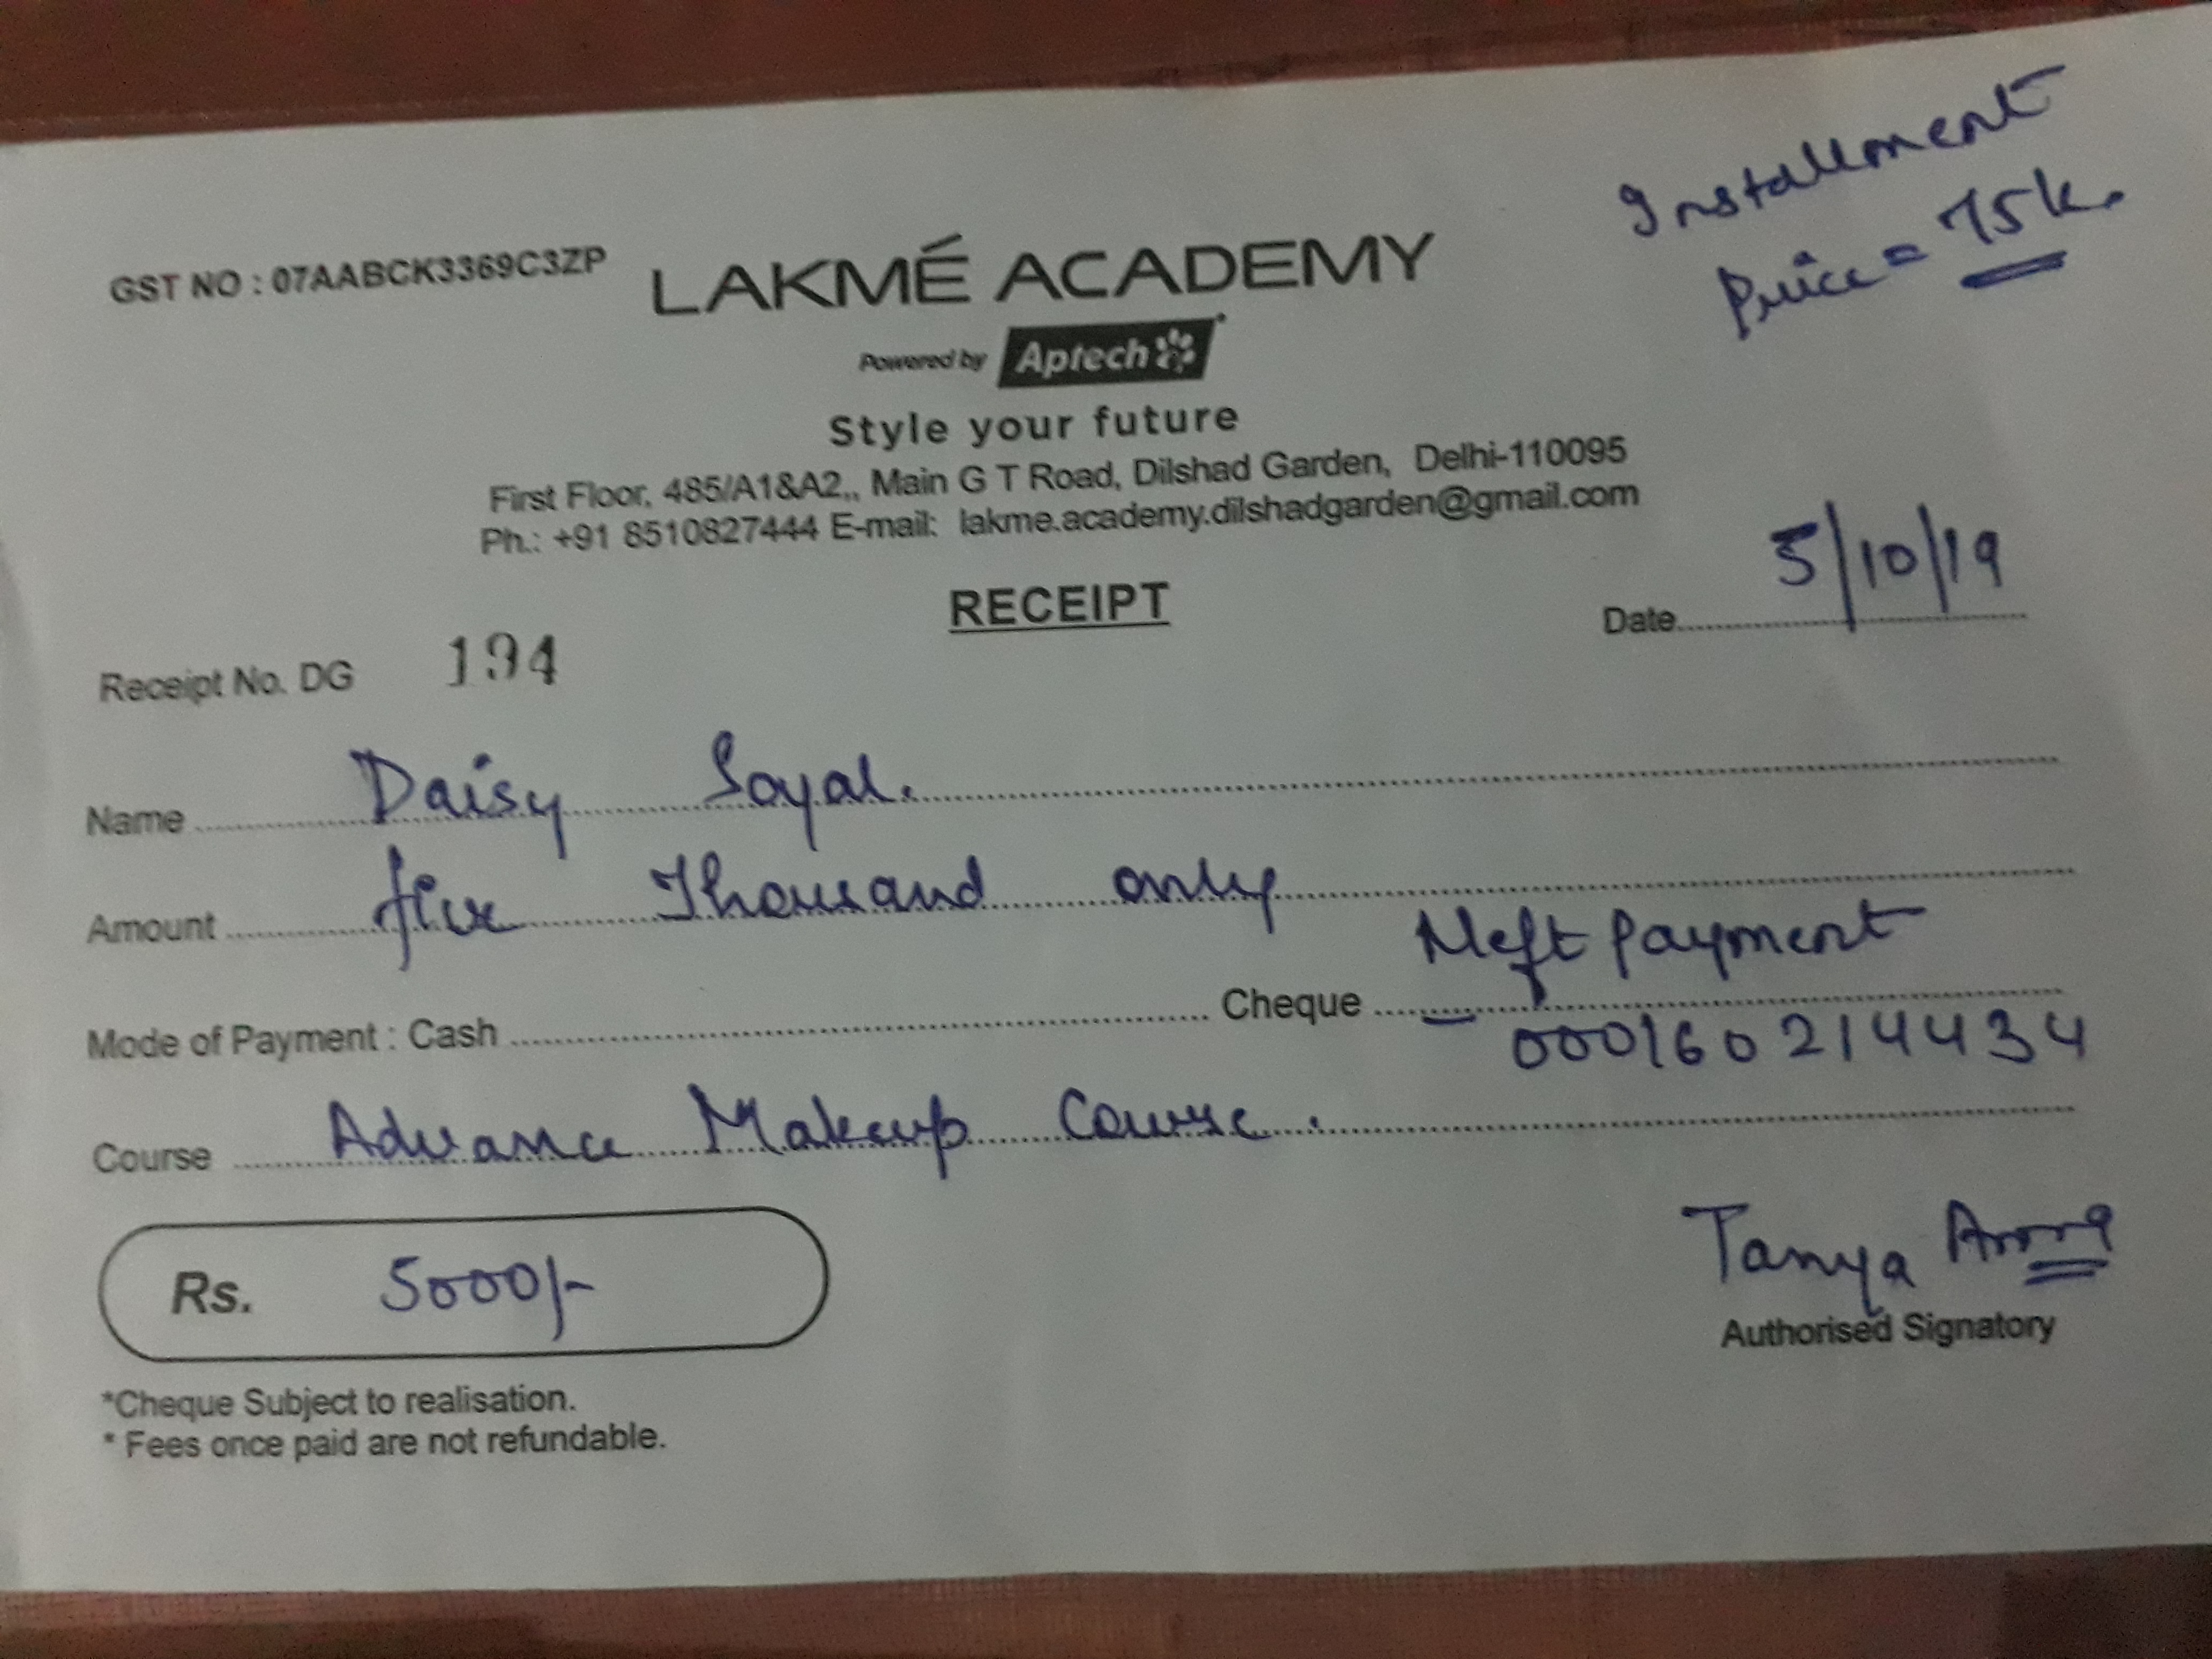 GST NO : 07AABCK3369C3ZP
Installment
Price = 75k.
LAKMÉ ACADEMY
Powered by Aptech
Style your future
First Floor, 485/A1&A2,, Main G T Road, Dilshad Garden, Delhi-110095
Ph.: +91 8510827444 E-mail: lakme.academy.dilshadgarden@gmail.com
RECEIPT
Receipt No. DG 194
Date 5/10/19
Name Daisy Soyal.
Amount five Thousand only
Neft Payment
Mode of Payment : Cash Cheque — 000160214434
Course Advance Makeup Course.
Rs. 5000/-
Tanya
Authorised Signatory
*Cheque Subject to realisation.
* Fees once paid are not refundable.